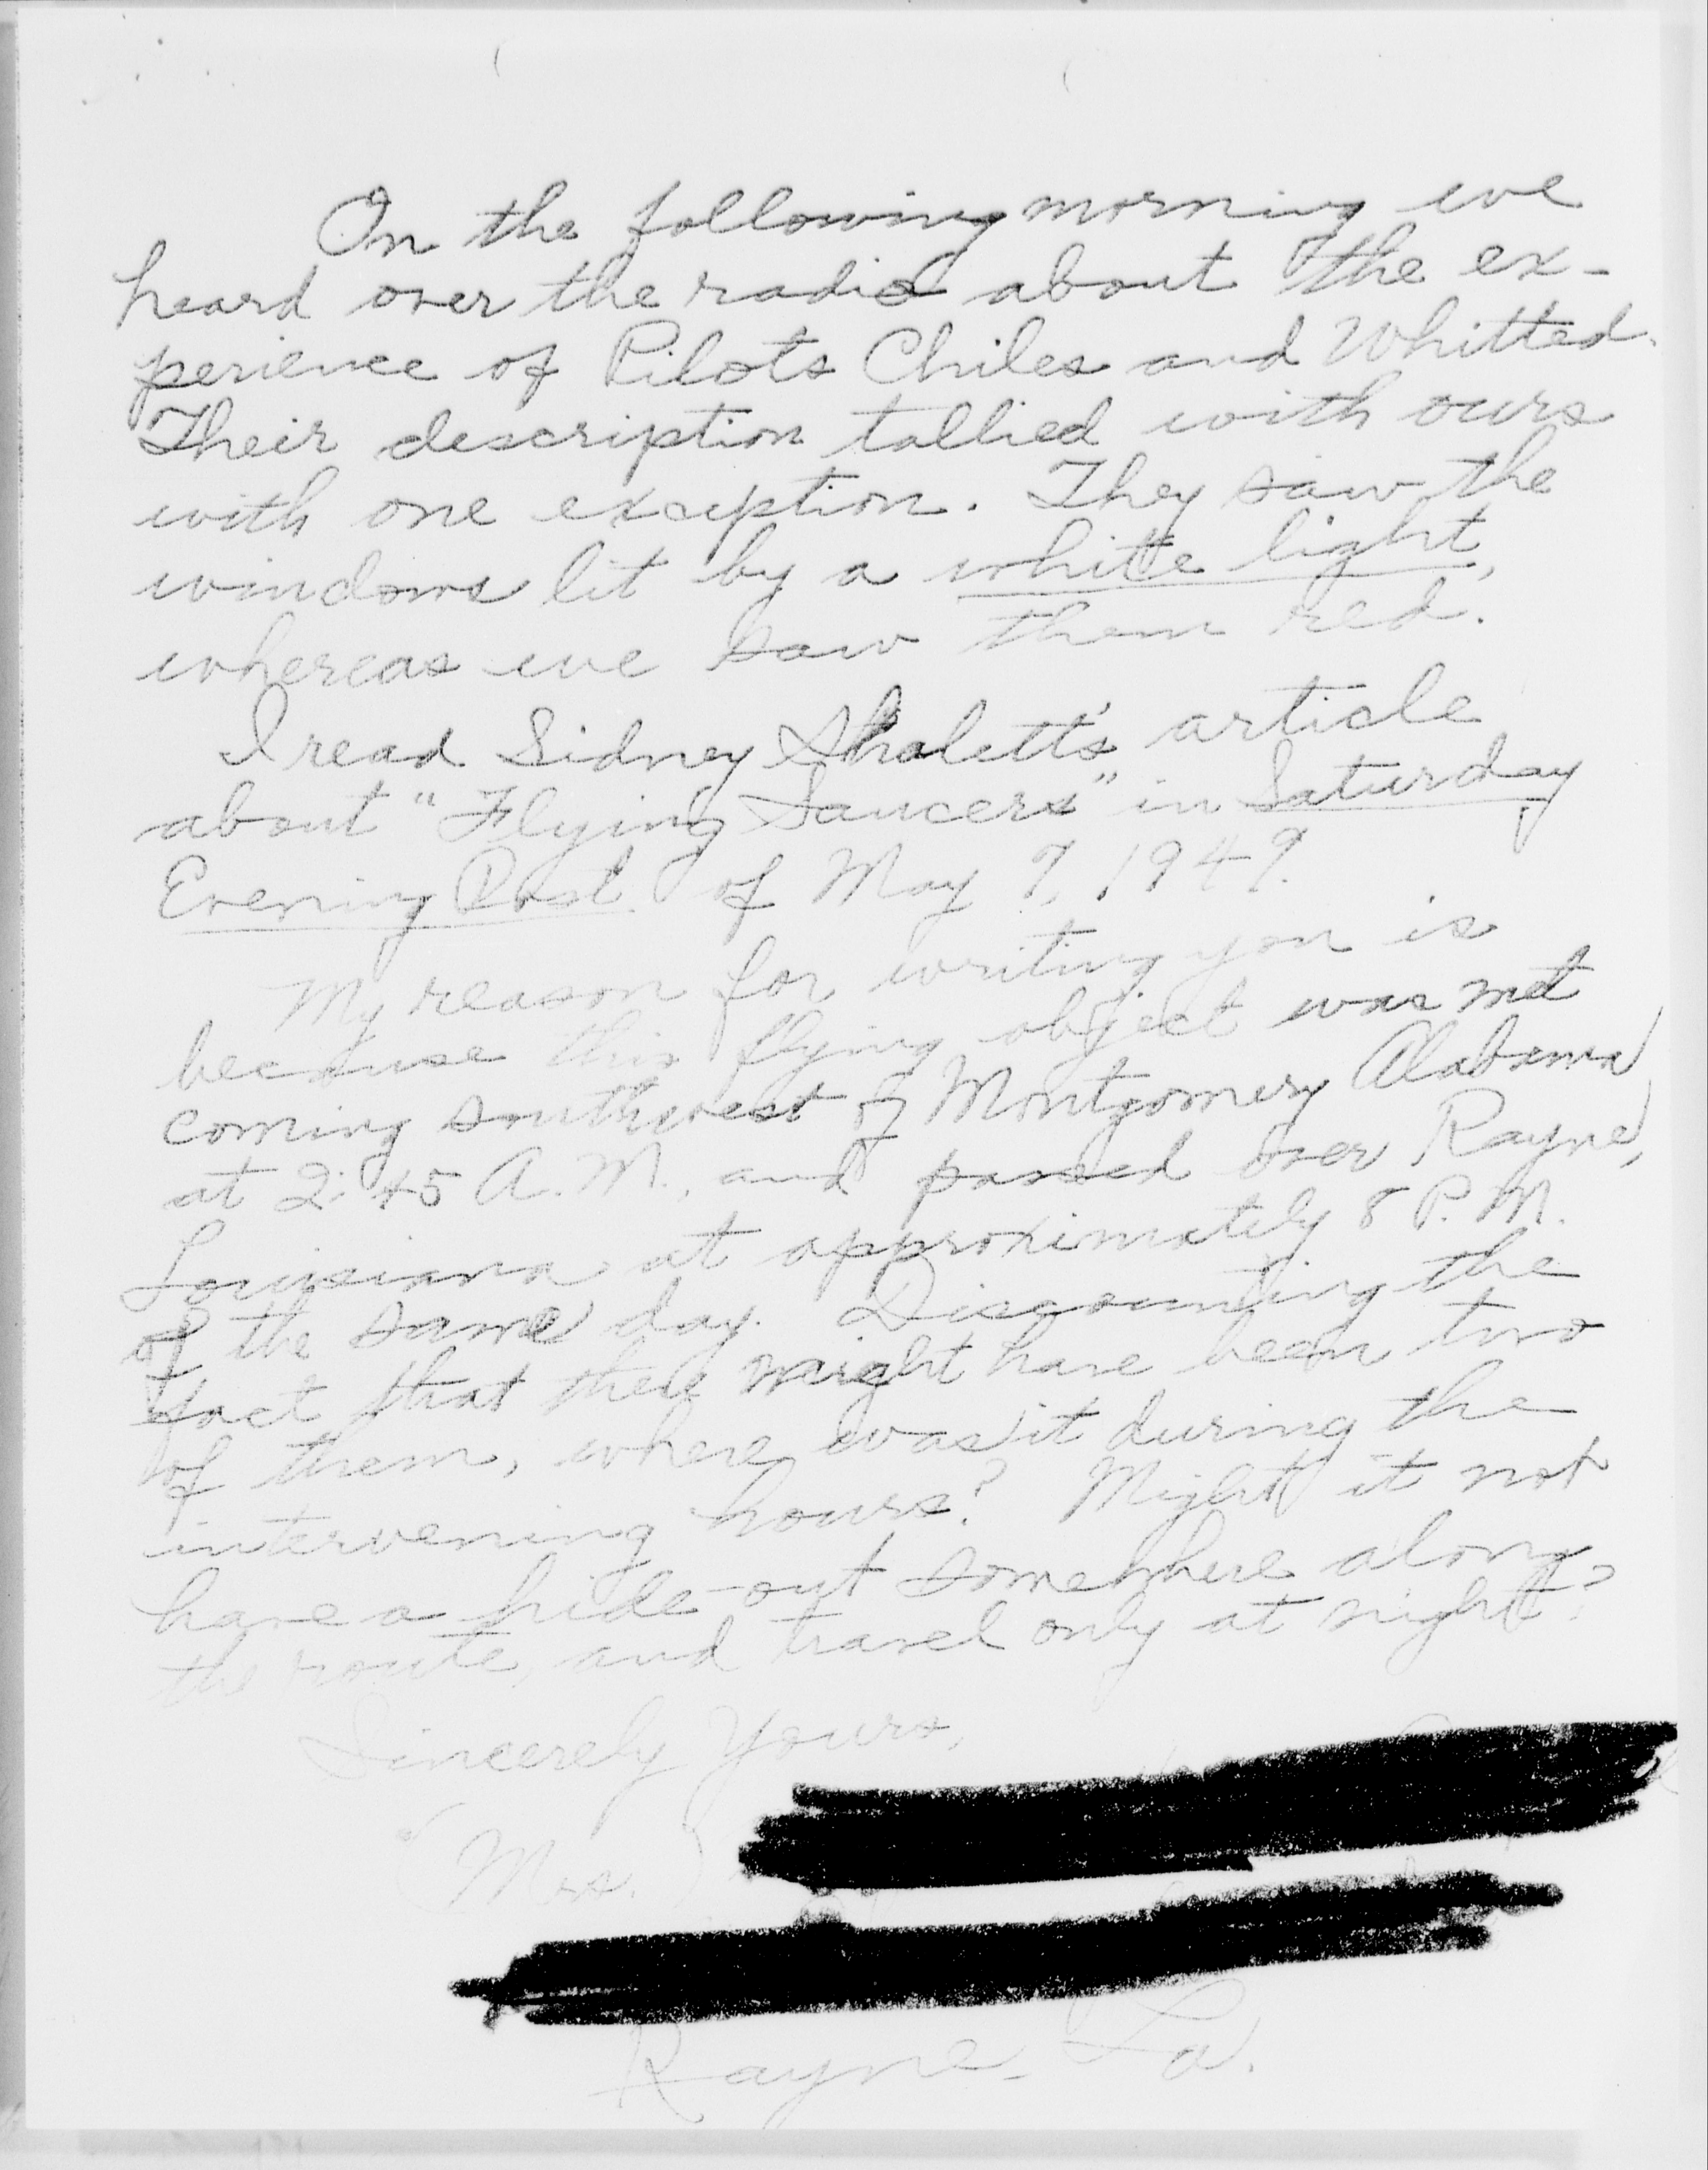 On the following morning we
heard over the radio about the ex-
perience of Pilots Chiles and Whitted.
Their description tallied with ours
with one exception. They saw the
windows lit by a white light,
whereas we saw them red.
I read Sidney Shalett's article
about "Flying Saucers" in Saturday
Evening Post of May 7, 1949.
My reason for writing you is
because this flying object was met
coming southwest of Montgomery Alabama
at 2:45 A.M., and passed over Rayne,
Louisiana at approximately 8 P.M.
of the same day. Discounting the
fact that there might have been two
of them, where was it during the
intervening hours? Might it not
have a hide-out somewhere along
the route, and travel only at night?
Sincerely Yours,
(Mrs.)
Rayne, La.